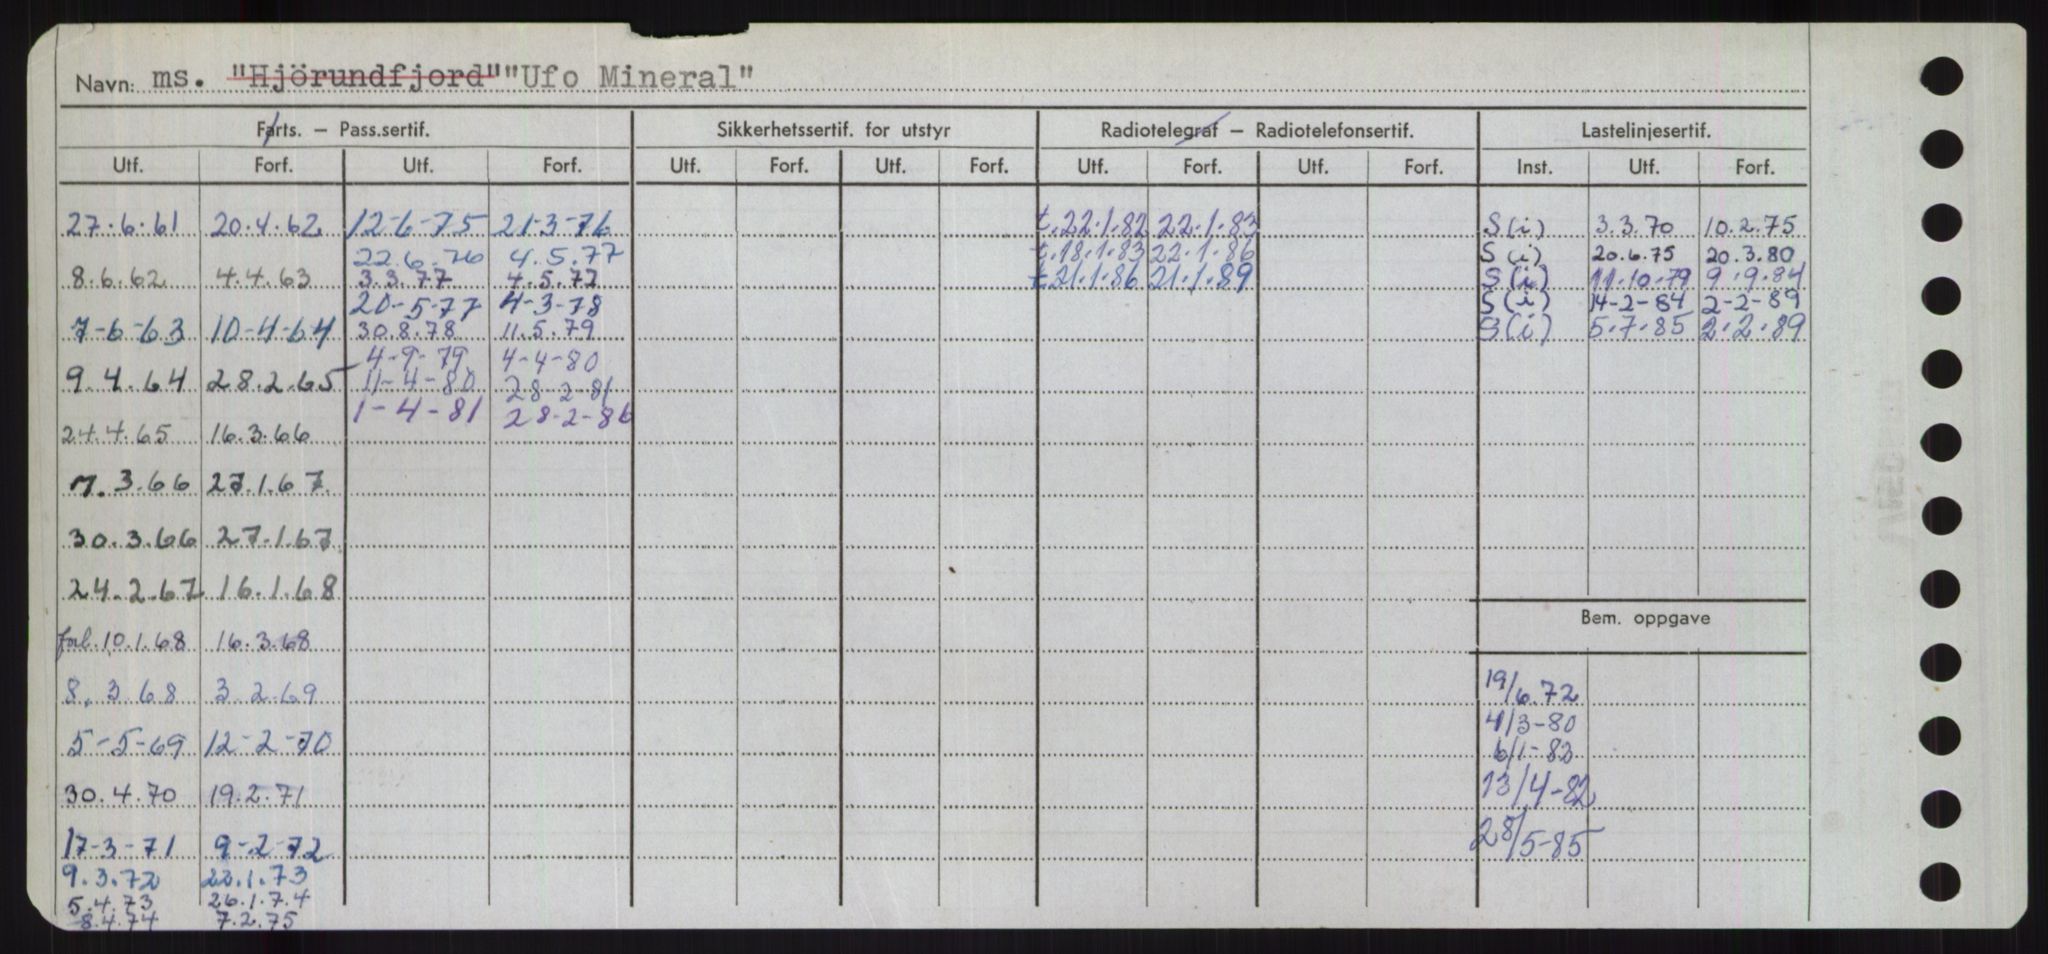 Navn: ms. "Hjörundfjord" "Ufo Mineral"
Farts. – Pass.sertif. Sikkerhetssertif. for utstyr Radiotelegraf – Radiotelefonsertif. Lastelinjesertif.
Utf. Forf. Utf. Forf. Utf. Forf. Utf. Forf. Utf. Forf. Utf. Forf. Inst. Utf. Forf.
27.6.61 20.4.62 12-6-75 21-3-76 t.22.1.82 22.1.83 S(i) 3.3.70 10.2.75
22.6.76 4.5.77 t.18.1.83 22.1.86 S(i) 20.6.75 20.3.80
8.6.62 4.4.63 3.3.77 4.5.77 t.21.1.86 21.1.89 S(i) 11.10.79 9.9.84
20-5-77 4-3-78 S(i) 14-2-84 2-2-89
7-6-63 10-4-64 30.8.78 11.5.79 S(i) 5.7.85 2.2.89
4-9-79 4-4-80
9.4.64 28.2.65 11-4-80 28-2-81
1-4-81 28-2-86
24.4.65 16.3.66
7.3.66 27.1.67
30.3.66 27.1.67
24.2.67 16.1.68
Bem. oppgave
forl. 10.1.68 16.3.68
8.3.68 3.2.69 19/6.72
5-5-69 12-2-70 4/3-80
6/1-82
30.4.70 19.2.71 13/4-82
17-3-71 9-2-72 28/5-85
9.3.72 22.1.73
5.4.73 26.1.74
8.4.74 7.2.75